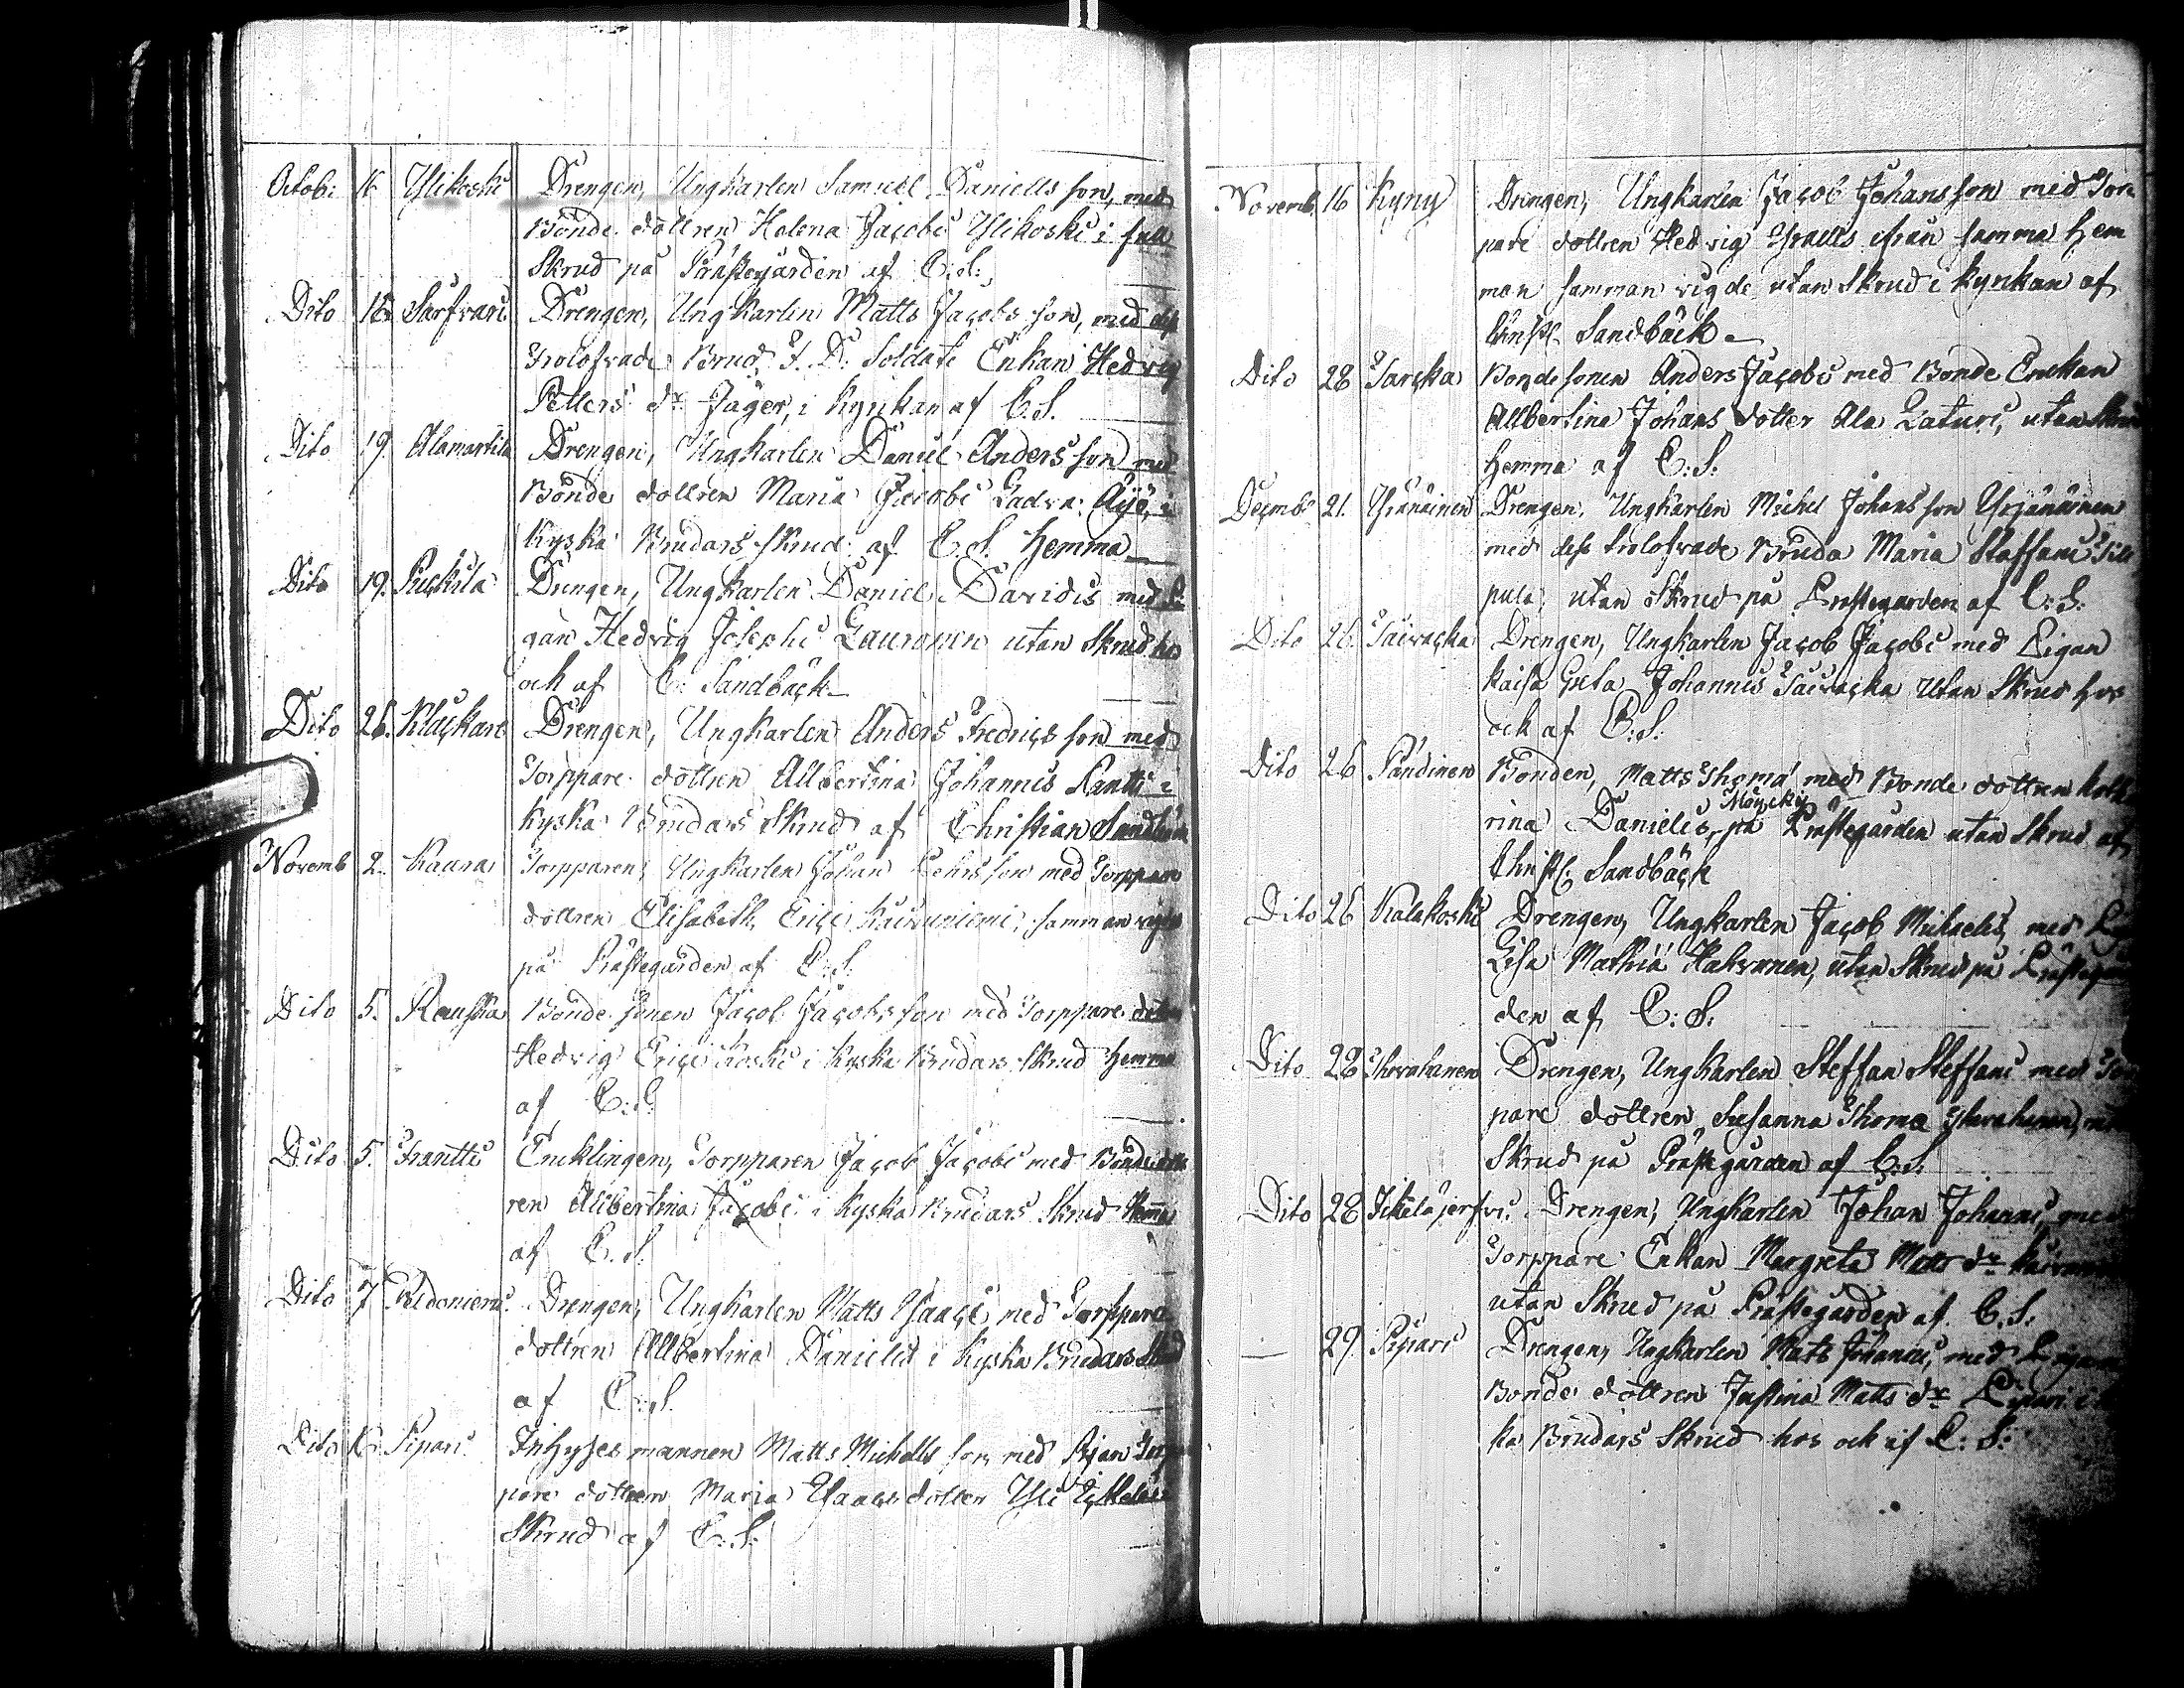 Octob: 16 Ylikoski Drengen, Ungkarlen Samuel Daniells son, med
Bonde dottren Helena Jacobi Ylikoski i full
Skrud på Prästegården af C:S:,
Dito 18 Sarfvari Drengen, Ungkarlen Matts Jacobs son, med dess
Trolofvade Brud, F. D. Soldate Enkan Hedvig
Petters dr Jäger, i Kyrkan af C.S.
Dito 19 Alamartila Drengen, Ungkarlen Daniel Anders son med
Bonde dottren Maria Jacobi Ladva: Äijö, i
Kyska Brudars skrud af C.S. hemma
Dito 19. Drengen, Ungkarlen Daniel Davidis med Pi
gan Hedvig Josephi Lauronen utan Skrud hos
och af C: Sandbäck
Dito 26. Klåckars Drengen, Ungkarlen Anders Fredrics son med
Torppare dottren Allbertina Johannis Rantti i
Kyska Brudars Skrud af Christian Sandbäck
Novemb 2. Kaara Torpparen, Ungkarlen Johan son med Torppare
dottren Elisabeth Erici Kaivuniemi, samman
på Prästegården af C:S:
Dito 5. Rauska Bonde sonen Jacob Jacobs son med Torppare
Hedvig Erici Koski i Kyska Brudars Skrud hemma
af C:S:
Dito 5. Frantti Encklingen, Torpparen Jacob Jacobi med Bonde dott
ren Allbertina Jacobi i Kyska Brudars Skrud Hemma
af C.S.
Dito 7 Drengen, Ungkarlen Matts Isaaci, med Torppare
dottren Allbertina Danielis i Kyska Brudars Skrud
af C:S.
Dito Pipari Inhyses mannen Matts Michells son, med Pigan Torp
pare dottren Maria Isaacs dotter Yli
Skrud af C:S:
Novemb. 16 Kyny Drengen, Ungkarlen Jacob Johansson med Tor
pare dottren Hedvig Israels ifrån samma Hem
man samman vigde utan Skrud i Kyrkan af
Christ. Sandbäck
Dito 28 Bonde sonen Anders Jacobi med Bonde Enckan
Allbertina Johans dotter Ala Laturi, utan Skrud
hemma af C:S:
Decmb: 21. Yrjänäinen Drengen, Ungkarlen Michel Johans son Yrjänäinen
med dess trolofvade Bruda Maria Staffani
pula, utan Skrud på Prästegården af C:S:
Dito 26. Saivacka Drengen, Ungkarlen Jacob Jacobi med Pigan
Kaisa Greta Johannis Saivacka Utan Skrud hos
och af C:S:
Dito 26 Bonden, Matts Thomæ med Bonde dottren
rina Danielis, Möycky på Prästegården utan Skrud af
Christ: Sandbäck
Dito 26 Kalakoski Drengen, Ungkarlen Jacob Michaelis, med
Lisa Mathiä utan Skrud på Prästegår
den af C:S:
Dito 28 Drengen, Ungkarlen Steffan Steffani med Tor
pare dottren Susanna Thoma
Skrud på Prästegården af C:S:
Dito 28 Drengen, Ungkarlen Johan Johanni, med
Torppare Enkan Margreta Matts dr
utan Skrud på Prästegården af C.S:
29 Pipari Drengen, Ungkarlen Matts Johanni, med
Bonde dottren Justina Matts dr Pipari i
ka Brudars Skrud hos och af C:S: